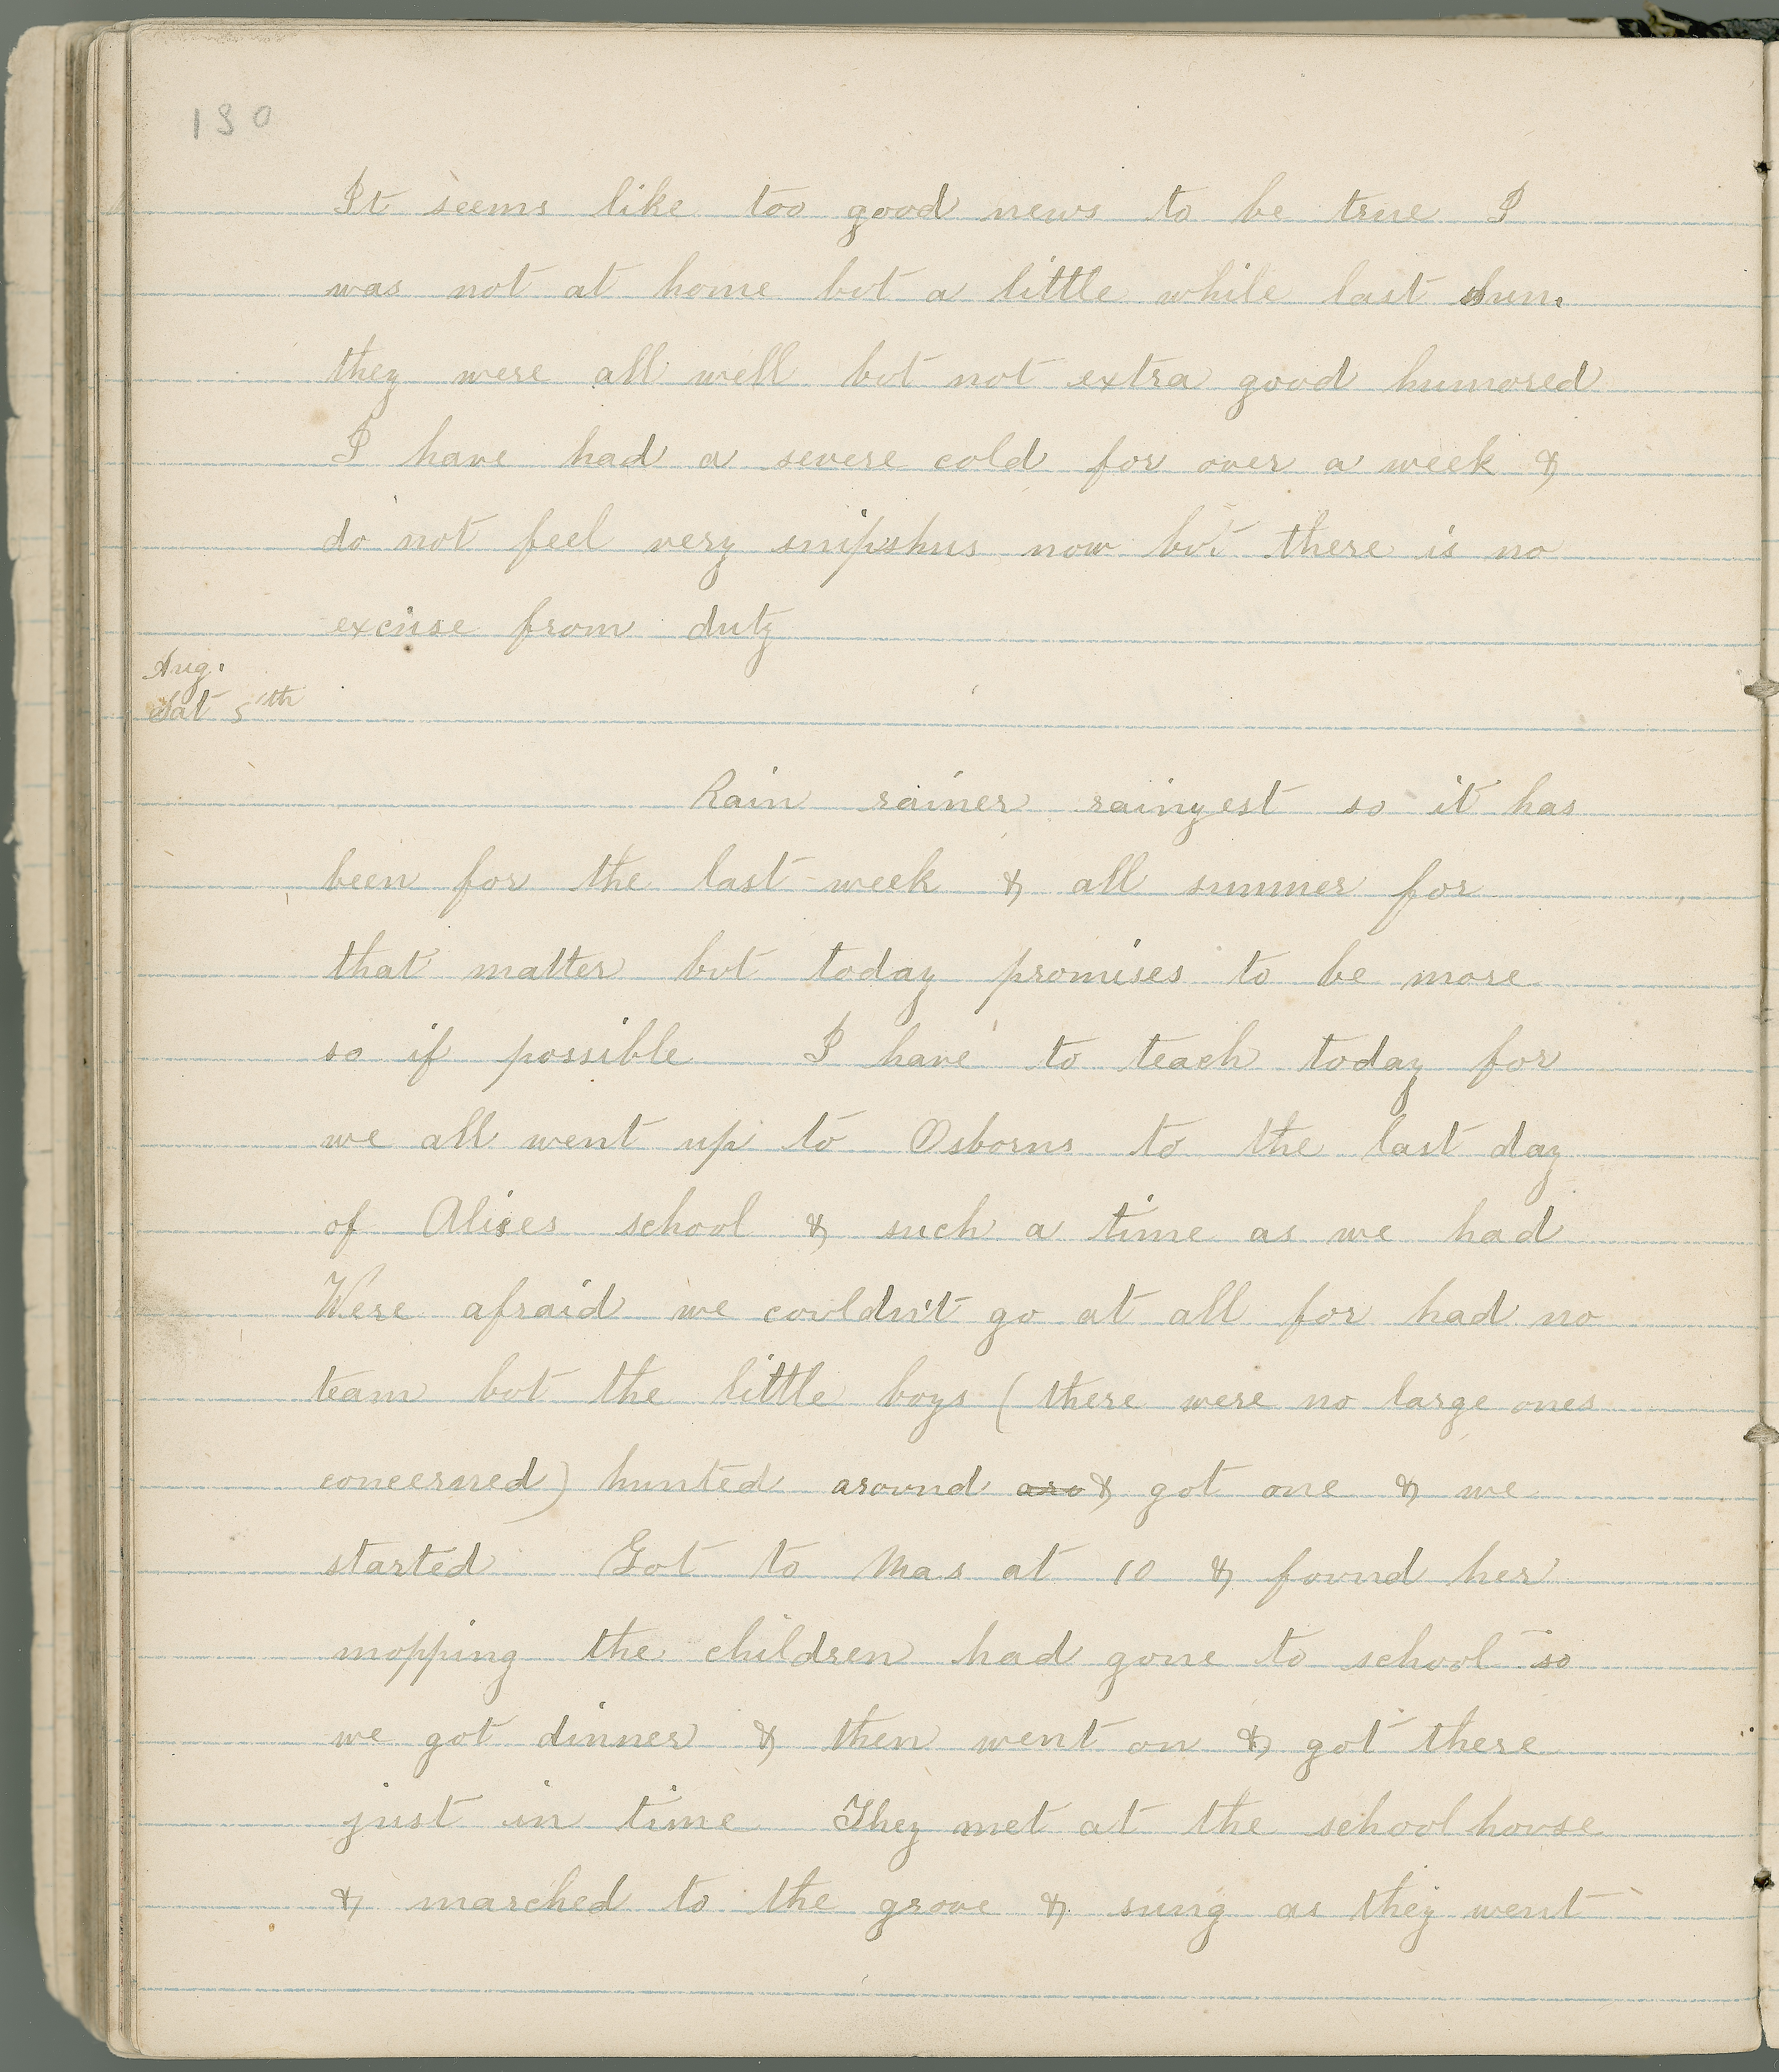 130
It seems like too good news to be true I
was not at home but a little while last Sun.
they were all well but not extra good humored
I have had a severe cold for over a week &
do not feel very snipshus now but there is no
excuse from duty
Aug.
Sat 5th
Rain rainer rainyest so it has
been for the last week & all summer for
that matter but today promises to be more
so if possible I have to teach today for
we all went up to Osborns to the last day
of Alices school & such a time as we had
Were afraid we couldn't go at all for had no
team but the little boys (there were no large ones
concerned) hunted around aro & got one & we
started Got to Mas at 10 & found her
mopping the children had gone to school so
we got dinner & then went on & got there
just in time They met at the school house
& marched to the grove & sung as they went